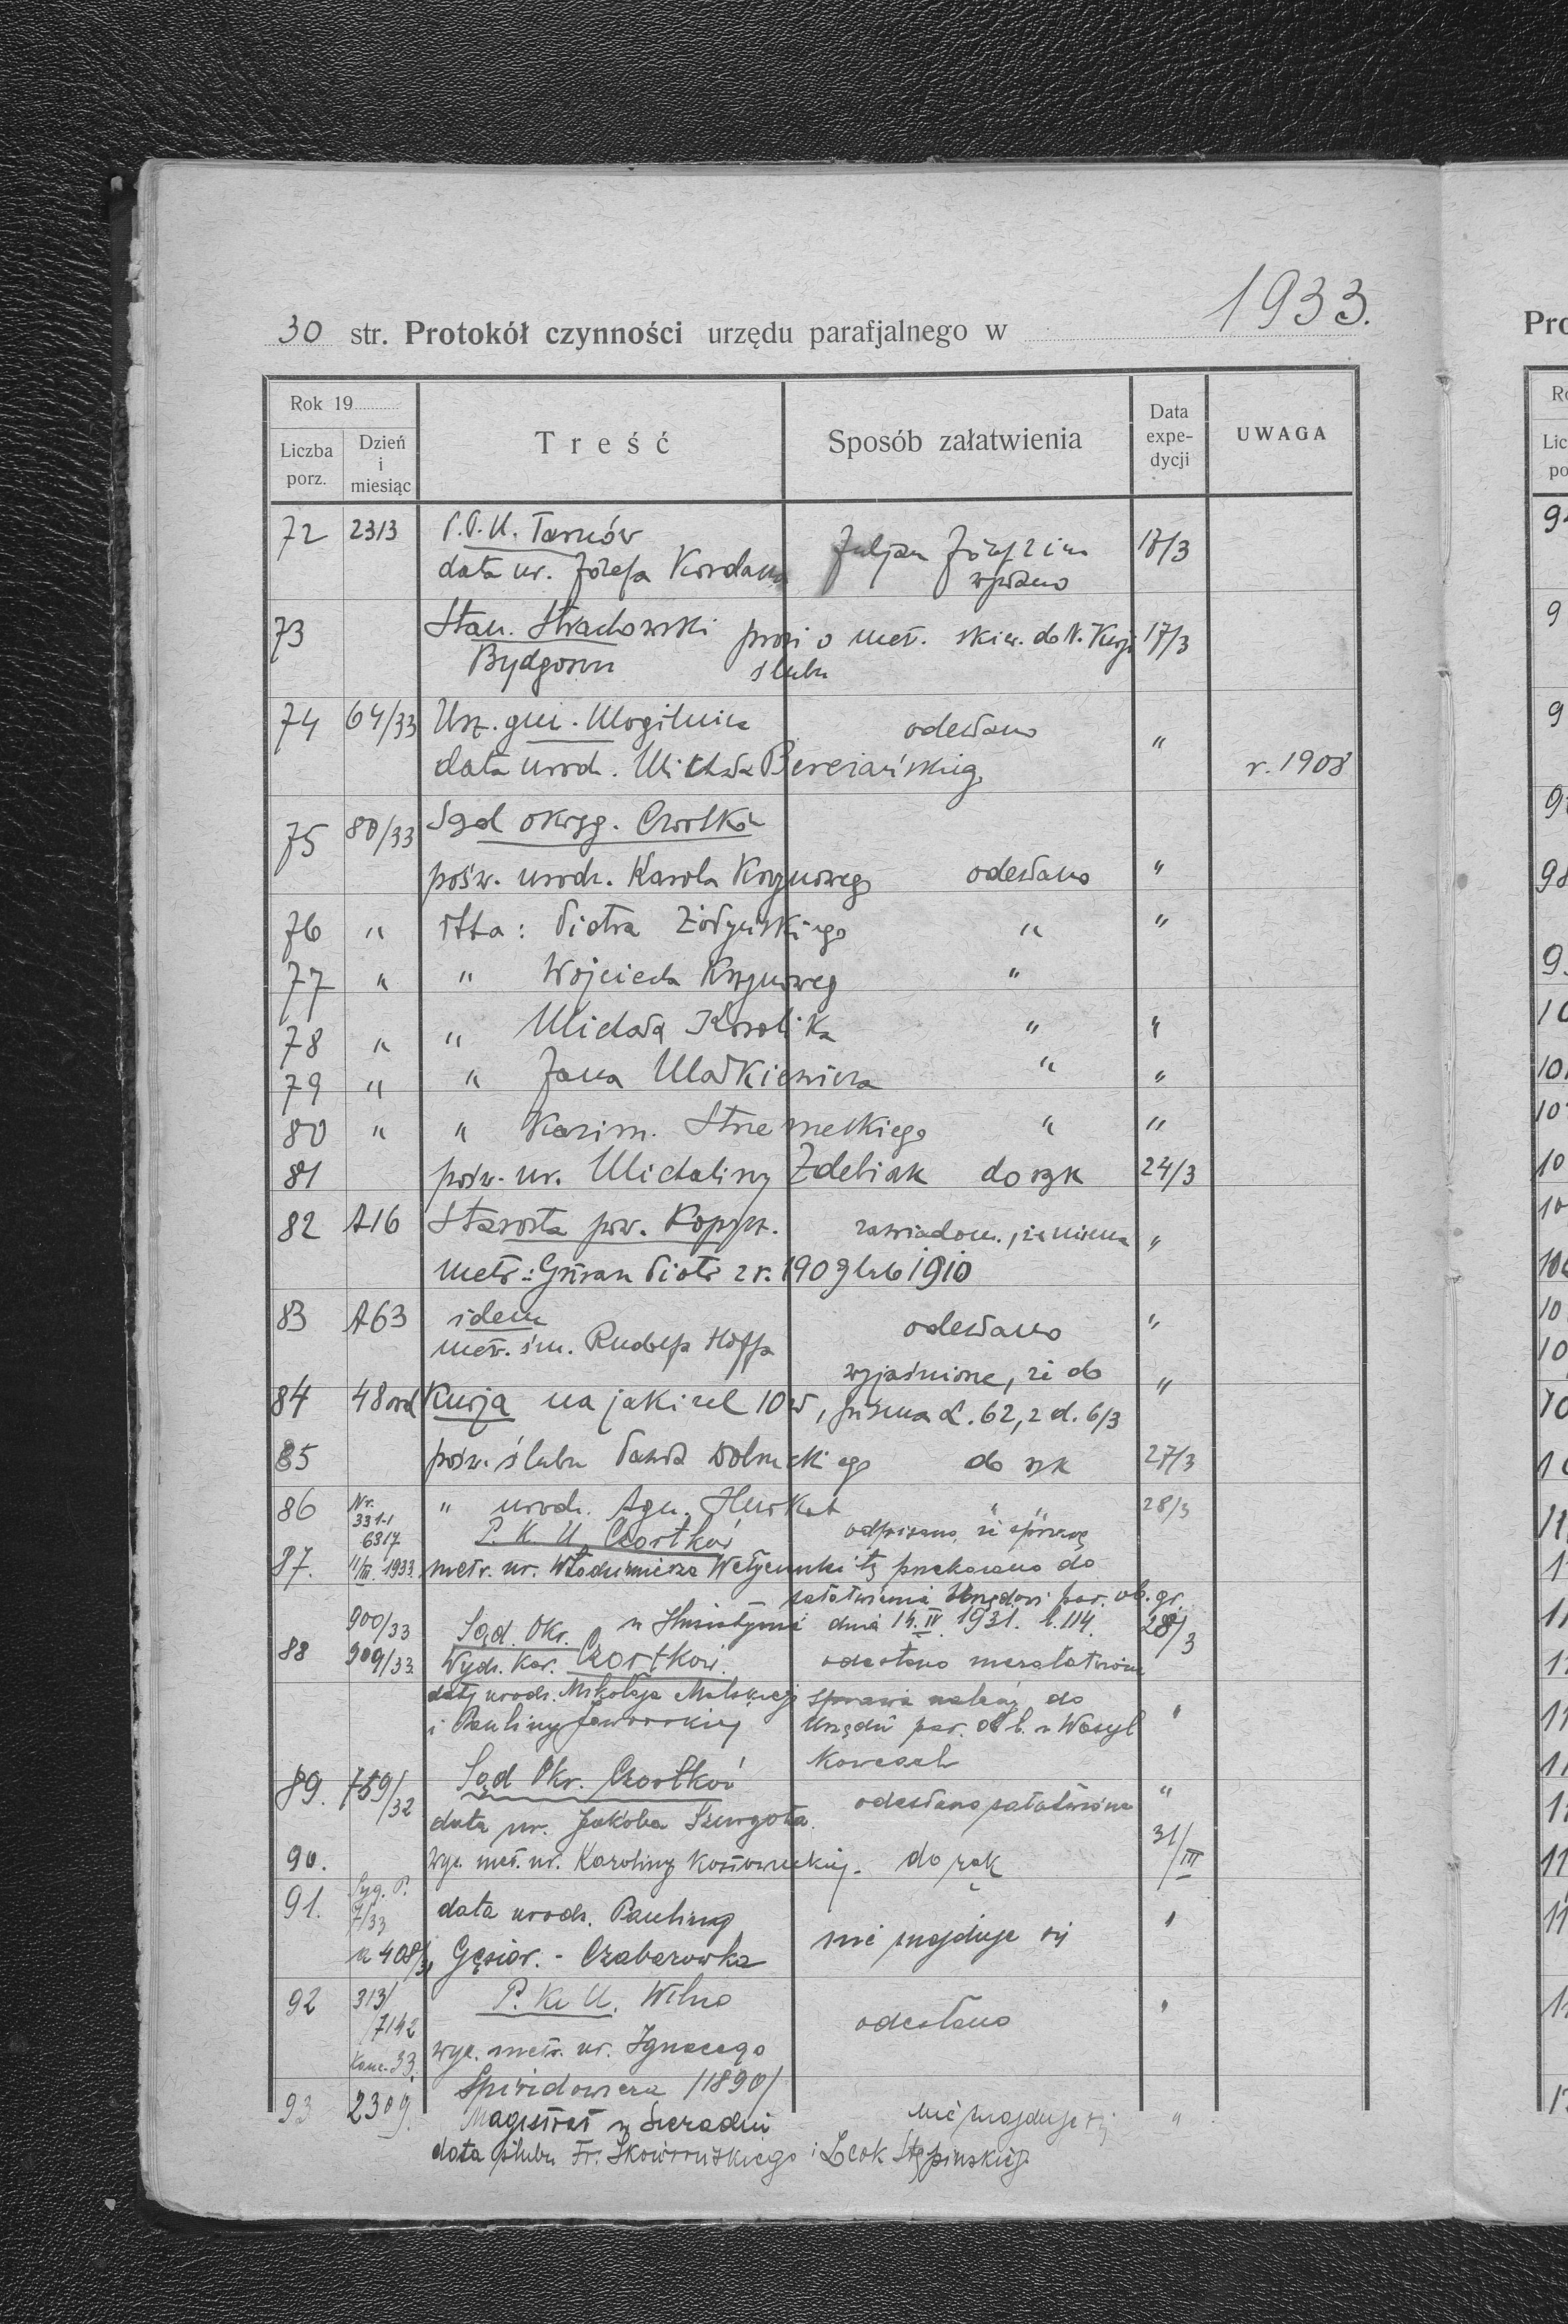 1933.
30 str. Protokół czynności urzędu parafjalnego w
Rok 19
Liczba porz. Dzień i miesiąc Treść Sposób załatwienia Data expe-dycji UWAGA
72 23/3 P.P.U. Tarnów 17/3
data ur. Józefa Kordana
73 Stan. Strachowski prosi o metr. skier. do N. Kurji 17/3
Bydgoszcz ślubu
74 64/33 Urz. gm. Mogilnica odesłano "
data urodz. Michała Bereziańskieg r. 1908
75 80/33 Sąd okręg. Czortków
pośw. urodz. Karola Krzynowego odesłano "
76 " dtta: Piotra Żołyńskiego " "
77 " " Wojciecha Krzynoweg "
78 " " Michała Królika " "
79 " " Jana Małkiewicza " "
80 " " Kazim. Strzemeskiego " "
81 pośw. ur. Michaliny Zdebiak do rąk 24/3
82 A16 Starosta pow. Kopycz. zawiadom., że niema "
metr.: Piotr z r. 1909 lub 1910
83 A63 idem odesłano "
metr. śm. Rudolfa Hoffa
84 48 ord Kurja na jaki cel 10 zł wyjaśnione, że do "
pisma L. 62, z d. 6/3
85 pośw. ślubu Pawła Dolnickiego do rąk 27/3
86 " urodz. Agn. Hurkot " " 28/3
Nr. 331-1
6317 P. K. U. Czortków odpisano, że sprawę
87. 11/III. 1933 metr. ur. Włodzimierza tę przekazano do
załatwienia Urzędowi par. ob. gr.
w Husiatynie dnia 14. IV 1931. l. 114. 28/3
88 900/33 Sąd. Okr.
909/33 Wydz. Kar. Czortków. odesłano niezałatwione
daty urodz. Mikołaja sprawa należy do "
i Pauliny Jaworskiej Urzędu par. ob ł. w Wasyl
kowcach
89. 759/32 Sąd Okr. Czortków odesłano załatwione "
data ur. Jakóba Szurgota.
90. wyc. met. ur. Karoliny do rąk 31/III
91. Syg. P.
7/33 data urodz. Pauliny nie znajduje się "
408/31 Gąsior. - Czabarowka
92 313/ P. K. U. Wilno odesłano "
7142
Kanc. 33. wyc. metr. ur. Ignacego
Spiridowicza /1890/
93 2309. Magistrat w Sieradzu nie znajduje się "
data ślubu Fr. Skowrońskiego i Leok Stępińskiej
Pro